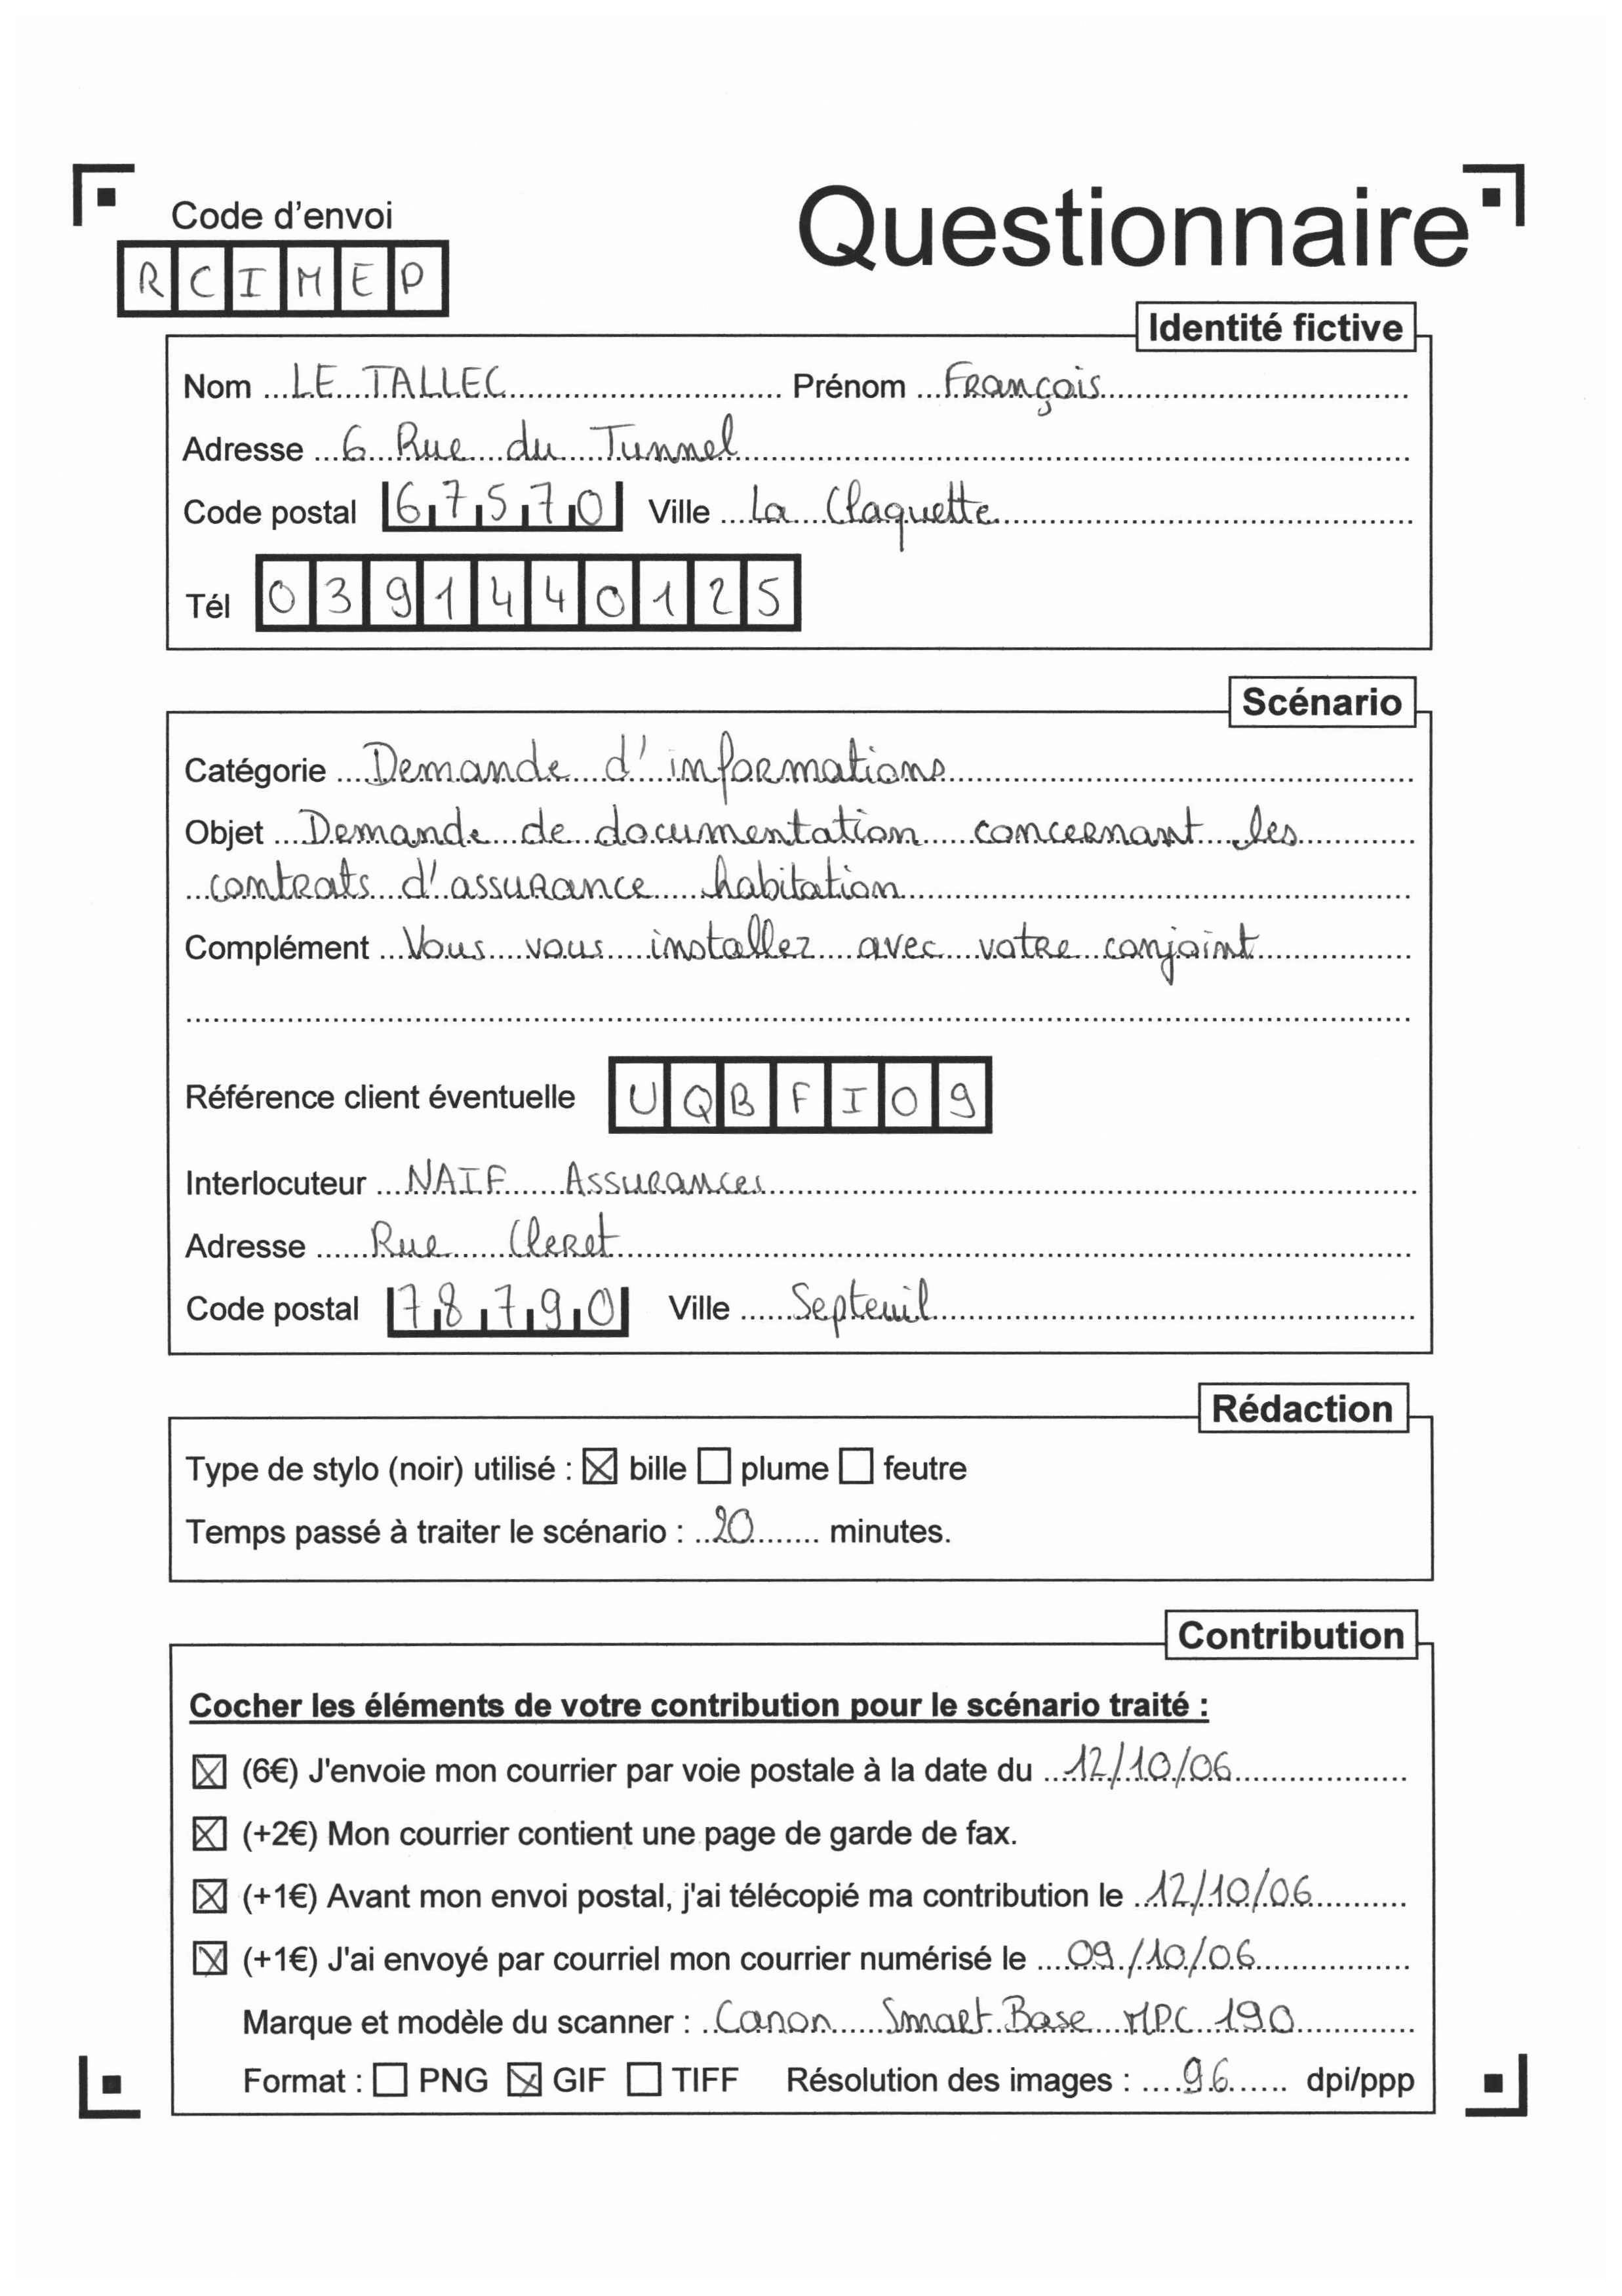 Code d'envoi
Questionnaire
RCIMEP
Identité fictive
Nom LE TALLEC Prénom François
Adresse 6 Rue du Tunnel
Code postal 67570 Ville La Claquette
Tél 0391440125
Scénario
Catégorie Demande d'informations
Objet Demande de documentation concernant les
contrats d'assurance habitation
Complément Vous vous installez avec votre conjoint
Référence client éventuelle UQBFI09
Interlocuteur NAIF Assurances
Adresse Rue Cleret
Code postal 78790 Ville Septeuil
Rédaction
Type de stylo (noir) utilisé : ☒ bille ☐ plume ☐ feutre
Temps passé à traiter le scénario : 20 minutes.
Contribution
Cocher les éléments de votre contribution pour le scénario traité :
☒ (6€) J'envoie mon courrier par voie postale à la date du 12/10/06
☒ (+2€) Mon courrier contient une page de garde de fax.
☒ (+1€) Avant mon envoi postal, j'ai télécopié ma contribution le 12/10/06
☒ (+1€) J'ai envoyé par courriel mon courrier numérisé le 09/10/06
Marque et modèle du scanner : Canon Smart Base MPC 190
Format : ☐ PNG ☒ GIF ☐ TIFF Résolution des images : 96 dpi/ppp